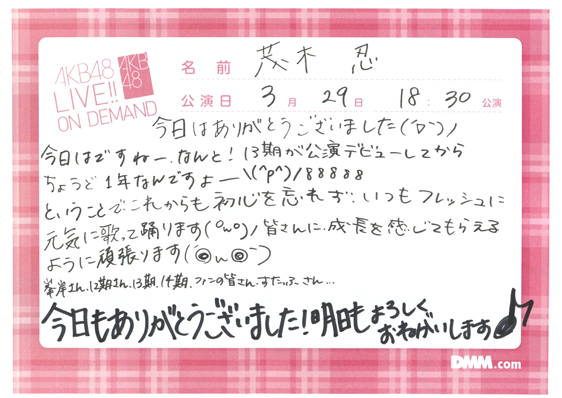 AKB48
LIVE!!
ON DEMAND
AKB
48
名前 茂木 忍
公演日 3月 29日 18:30公演
今日はありがとうございました(^▽^)ノ
今日はですねー、なんと!13期が公演デビューしてから
ちょうど1年なんですよー\(^p^)/88888
ということでこれからも初心を忘れず、いつもフレッシュに
元気に歌って踊ります(^ω^)ノ皆さんに成長を感じてもらえる
ように頑張ります(´◉ω◉`)
峯岸さん、12期さん、13期、14期、ファンの皆さん、すたっふーさん…
今日もありがとうございました!明日もよろしく
おねがいします♪
DMM.com